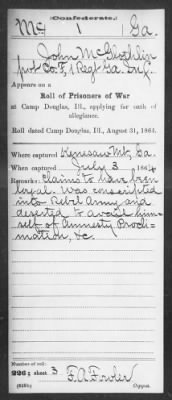 (Confederate.)
Mc 1 Ga.
John McGlochlin
pvt Co. F, 1 Regt Ga. Inf.
Appears on a
Roll of Prisoners of War
at Camp Douglas, Ill., applying for oath of
allegiance.
Roll dated Camp Douglas, Ill., August 31, 1864.
Where captured Kenesaw Mt, Ga.
When captured July 3, 1864
Remarks: Claims to have been
loyal. Was conscripted
into Rebel Army and
deserted to avail him-
self of Amnesty Procla-
mation, &c.
Number of roll:
226; sheet 3
F. A. Fowler
Copyist.